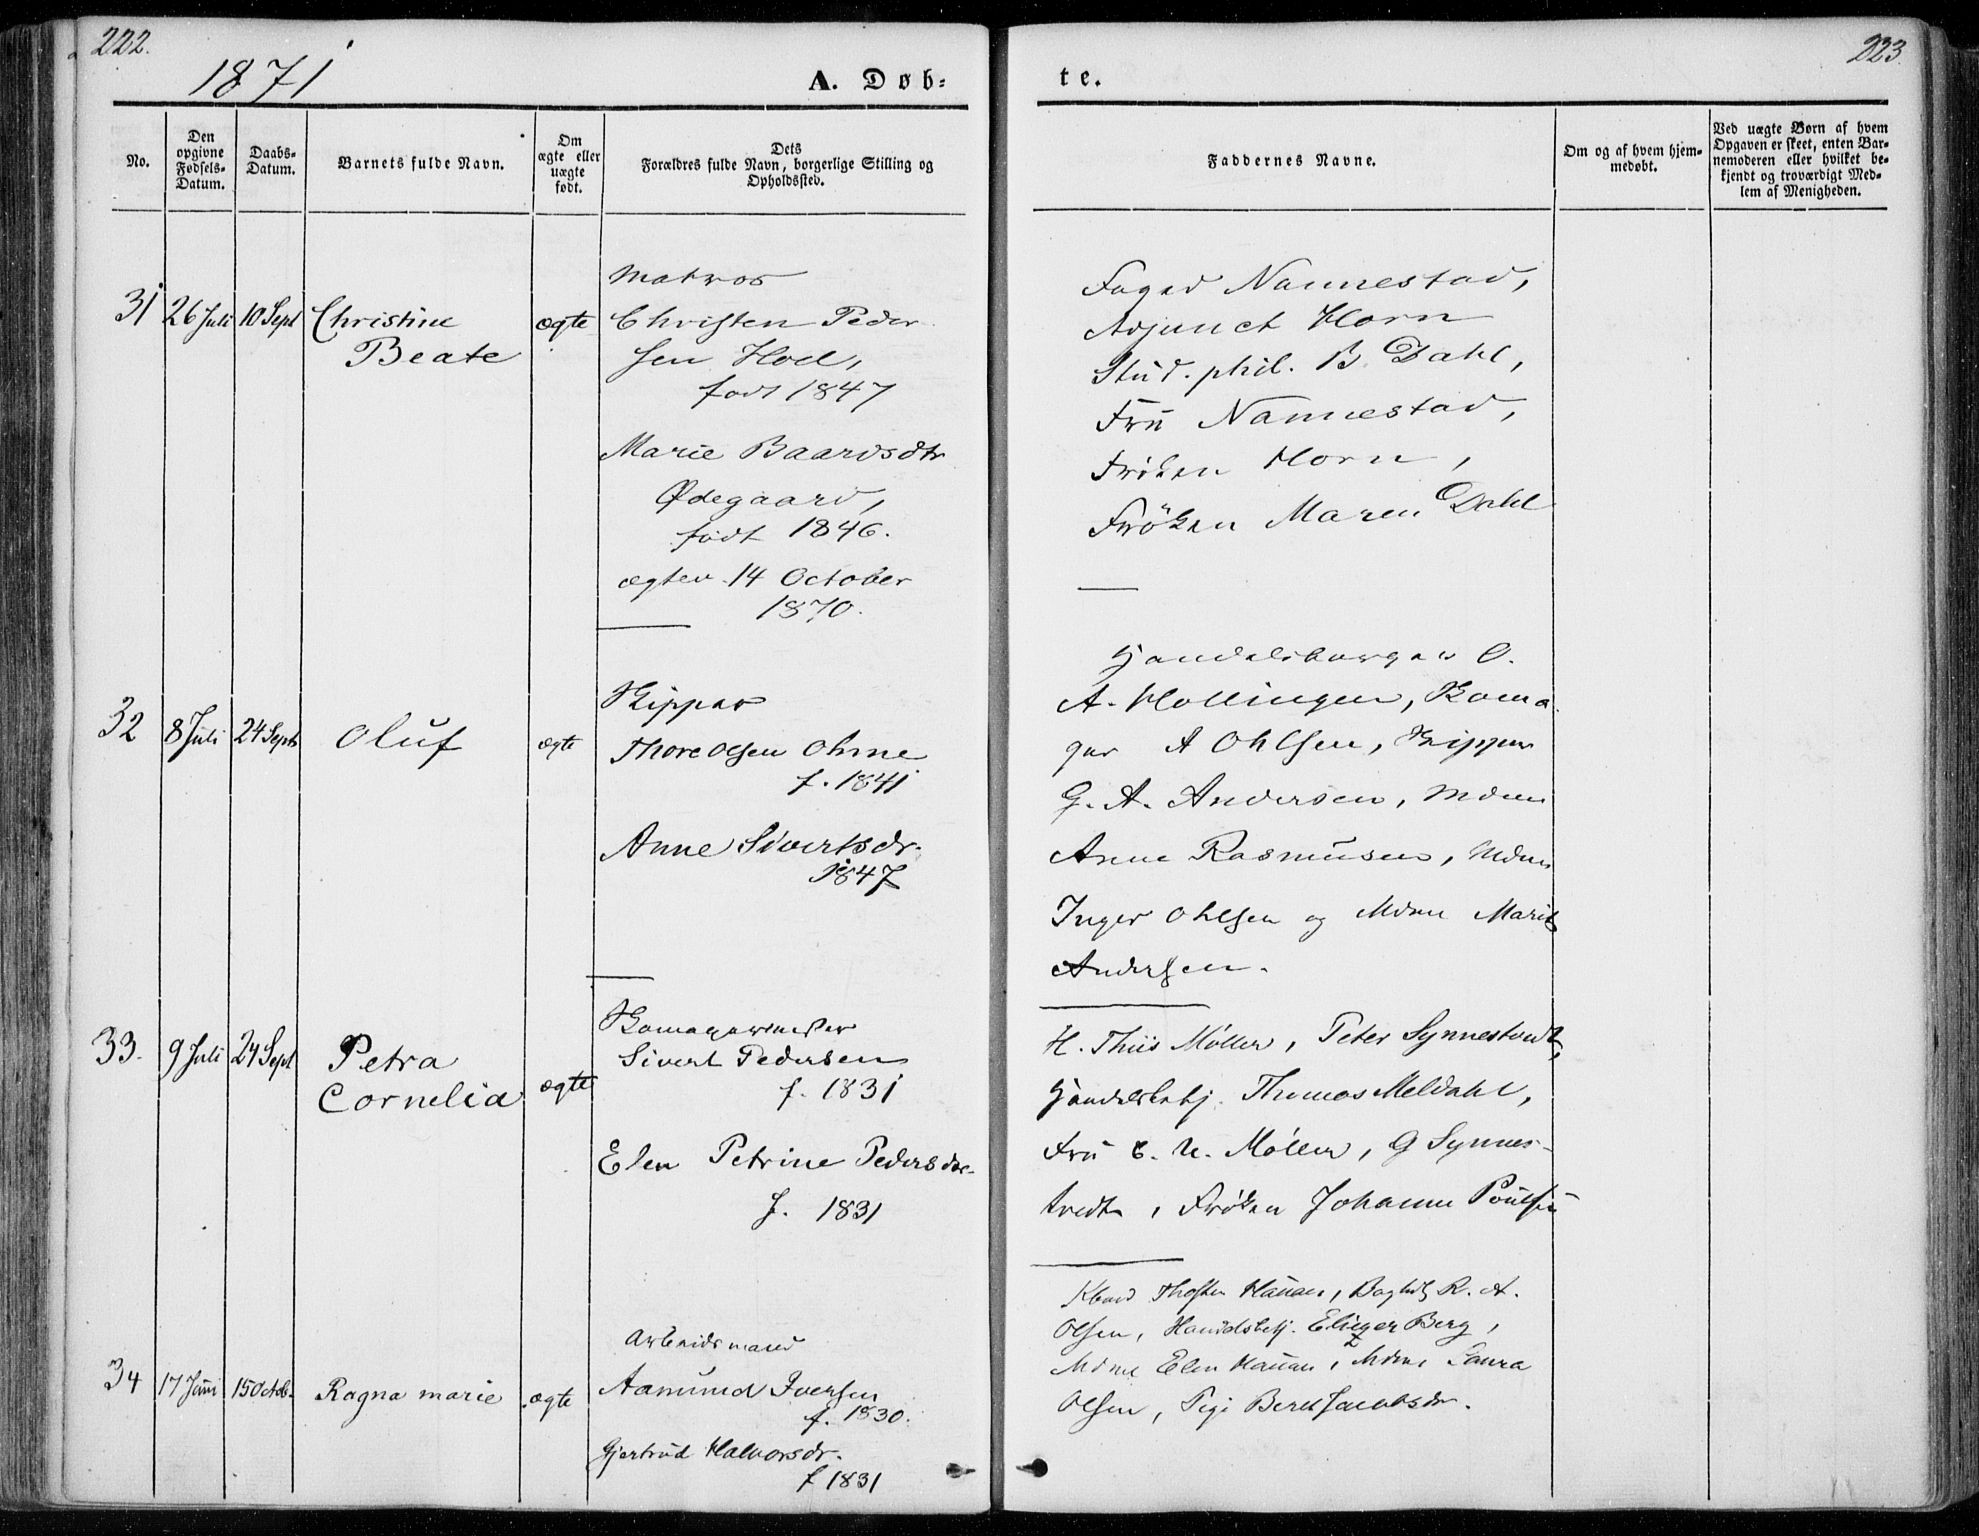 222.
1871
A. Døb-
No.
Den
opgivne
Fødsels-
Datum.
Daabs-
Datum.
Barnets fulde Navn.
Om
ægte eller
uægte
født.
Dets
Forældres fulde Navn, borgerlige Stilling og
Opholdssted.
31
26 Juli
10 Sept
Christine
Beate
ægte
Matros
Christen Peder
sen Hoel,
født 1847
Marie Baardsdtr
Ødegaard,
født 1846.
ægtev. 14 October
1870.
32
8 Juli
24 Septb
Oluf
ægte
Skipper
Thore Olsen Ohme
f. 1841
Anne Sivertsdr.
1847
33.
9 Juli
24 Sept
Petra
Cornelia
ægte
Komagermester
Sivert Pedersen
f. 1831
Elen Petrine Pedersdr.
f. 1831
34
17 Juni
15 Octob.
Ragna Marie
ægte
Arbeidsmand
Aamund Iversen
f. 1830.
Gjertrud Halvorsdr.
f 1831
223.
te.
Faddernes Navne.
Om og af hvem hjem-
medøbt.
Ved uægte Børn af hvem
Opgaven er skeet, enten Bar-
nemoderen eller hvilket be-
kjendt og troværdigt Med-
lem af Menigheden.
Foged Nannestad,
Adjunct Horn
Stud. phil. B. Dahl,
Fru Nannestad,
Frøken Horn,
Frøken Maren Dahl
Handelsborger O.
A. Hollingen, Koma
ger A Ohlsen, Skipper
G. A. Andersen, Mdme
Anne Rasmusen, Mdme
Inger Ohlsen og Mdme Marit
Andersen.
H. Thiis Møller, Peter Synnestvedt,
Handelsbetj. Thomas Meldahl,
Fru C. U. Møller, G Synnes-
tvedt, Frøken Johanne Poulsen
Thosten Hauan, R. A.
Olsen, Handelsbetj. Eliezer Berg,
Mdme Elen Hauan, Mdme Laura
Olsen, Pige Beret Jacobsdr.